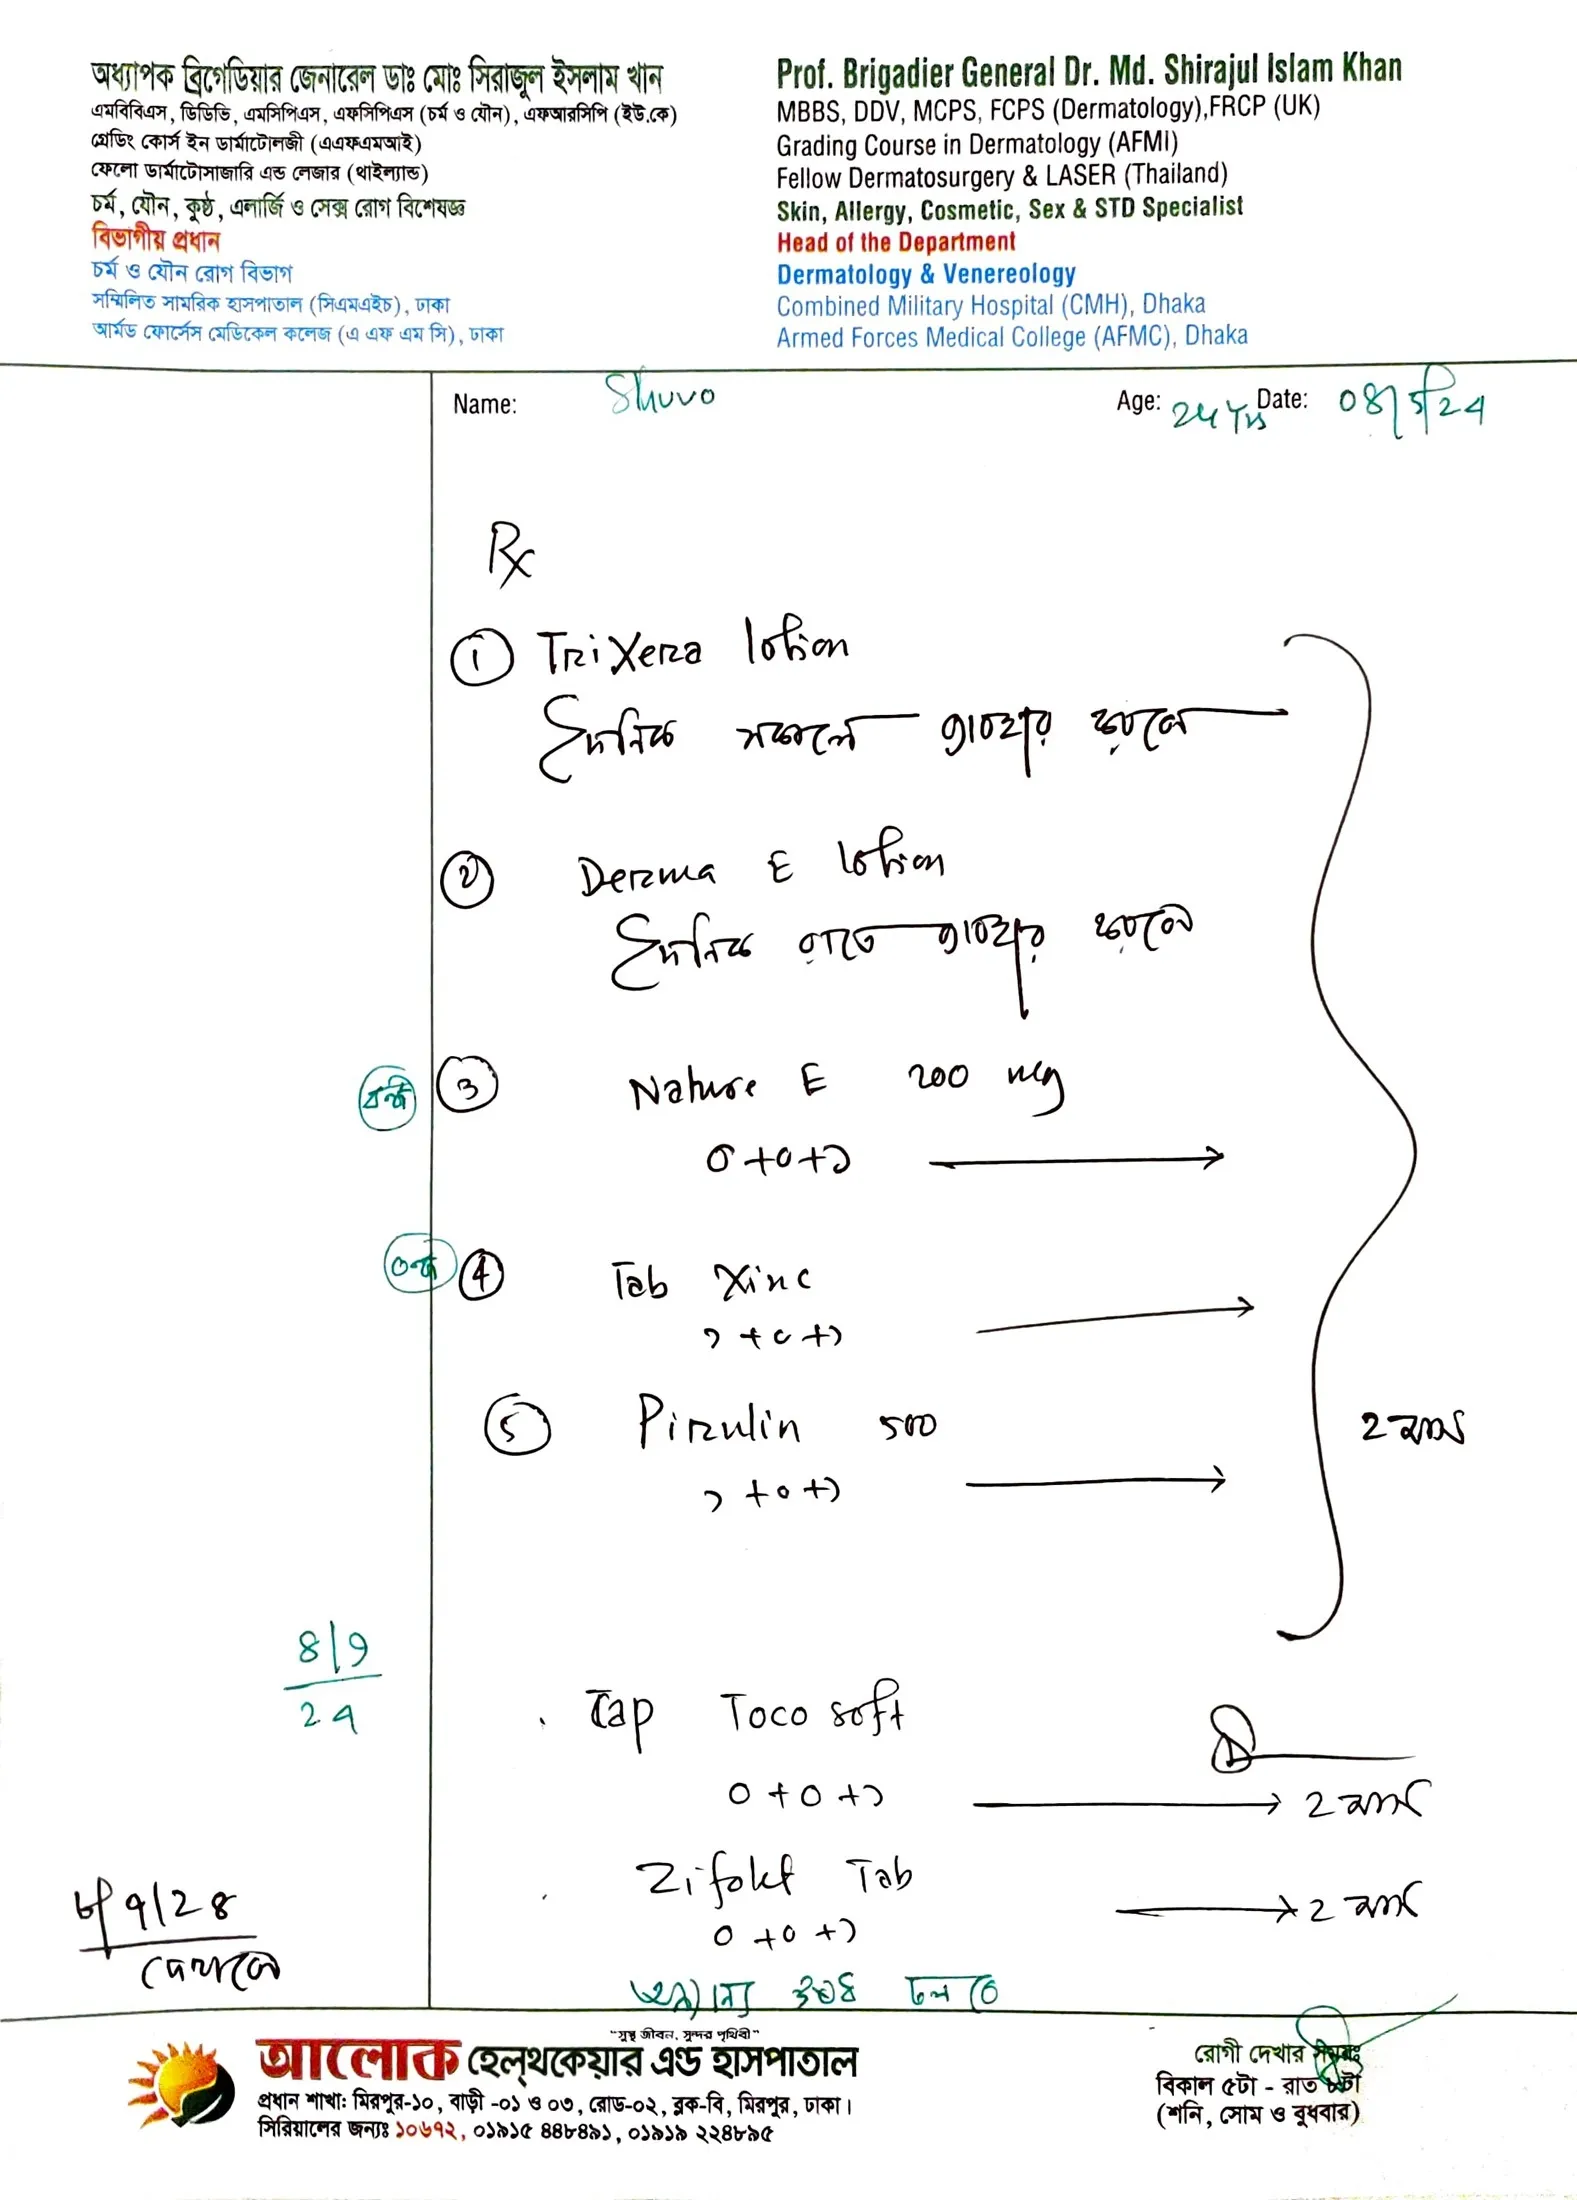 অধ্যাপক ব্রিগেডিয়ার জেনারেল ডাঃ মোঃ সিরাজুল ইসলাম খান
এমবিবিএস, ডিডিভি, এমসিপিএস, এফসিপিএস (চর্ম ও যৌন), এফআরসিপি (ইউ.কে)
গ্রেডিং কোর্স ইন ডার্মাটোলজী (এএফএমআই)
ফেলো ডার্মাটোসাজারি এন্ড লেজার (থাইল্যান্ড)
চর্ম, যৌন, কুষ্ঠ, এলার্জি ও সেক্স রোগ বিশেষজ্ঞ
বিভাগীয় প্রধান
চর্ম ও যৌন রোগ বিভাগ
সম্মিলিত সামরিক হাসপাতাল (সিএমএইচ), ঢাকা
আর্মড ফোর্সেস মেডিকেল কলেজ (এ এফ এম সি), ঢাকা
Prof. Brigadier General Dr. Md. Shirajul Islam Khan
MBBS, DDV, MCPS, FCPS (Dermatology),FRCP (UK)
Grading Course in Dermatology (AFMI)
Fellow Dermatosurgery & LASER (Thailand)
Skin, Allergy, Cosmetic, Sex & STD Specialist
Head of the Department
Dermatology & Venereology
Combined Military Hospital (CMH), Dhaka
Armed Forces Medical College (AFMC), Dhaka
Name: Shuvo Age: 24 Yrs Date: 08/5/24
Rx
① Trixera lotion
দৈনিক সকালে ব্যবহার করবেন
② Derma E lotion
দৈনিক রাতে ব্যবহার করবেন
বন্ধ ③ Nature E 200 mg
0+0+১
④ Tab Xinc
১+০+১
⑤ Pirulin 500
১+০+১
2 মাস
8/9
24
Cap Toco soft
0+0+১ 2 মাস
Zifolet Tab
0+0+১ 2 মাস
9/28
দেখাবেন
অন্যান্য ঔষধ চলবে
"সুস্থ জীবন, সুন্দর পৃথিবী"
আলোক হেল্‌থকেয়ার এন্ড হাসপাতাল
প্রধান শাখাঃ মিরপুর-১০, বাড়ী -০১ ও ০৩, রোড-০২, ব্লক-বি, মিরপুর, ঢাকা।
সিরিয়ালের জন্যঃ ১০৬৭২, ০১৯১৫ ৪৪৮৪৯১, ০১৯১৯ ২২৪৮৯৫
রোগী দেখার সময়ঃ
বিকাল ৫টা - রাত ৮টা
(শনি, সোম ও বুধবার)